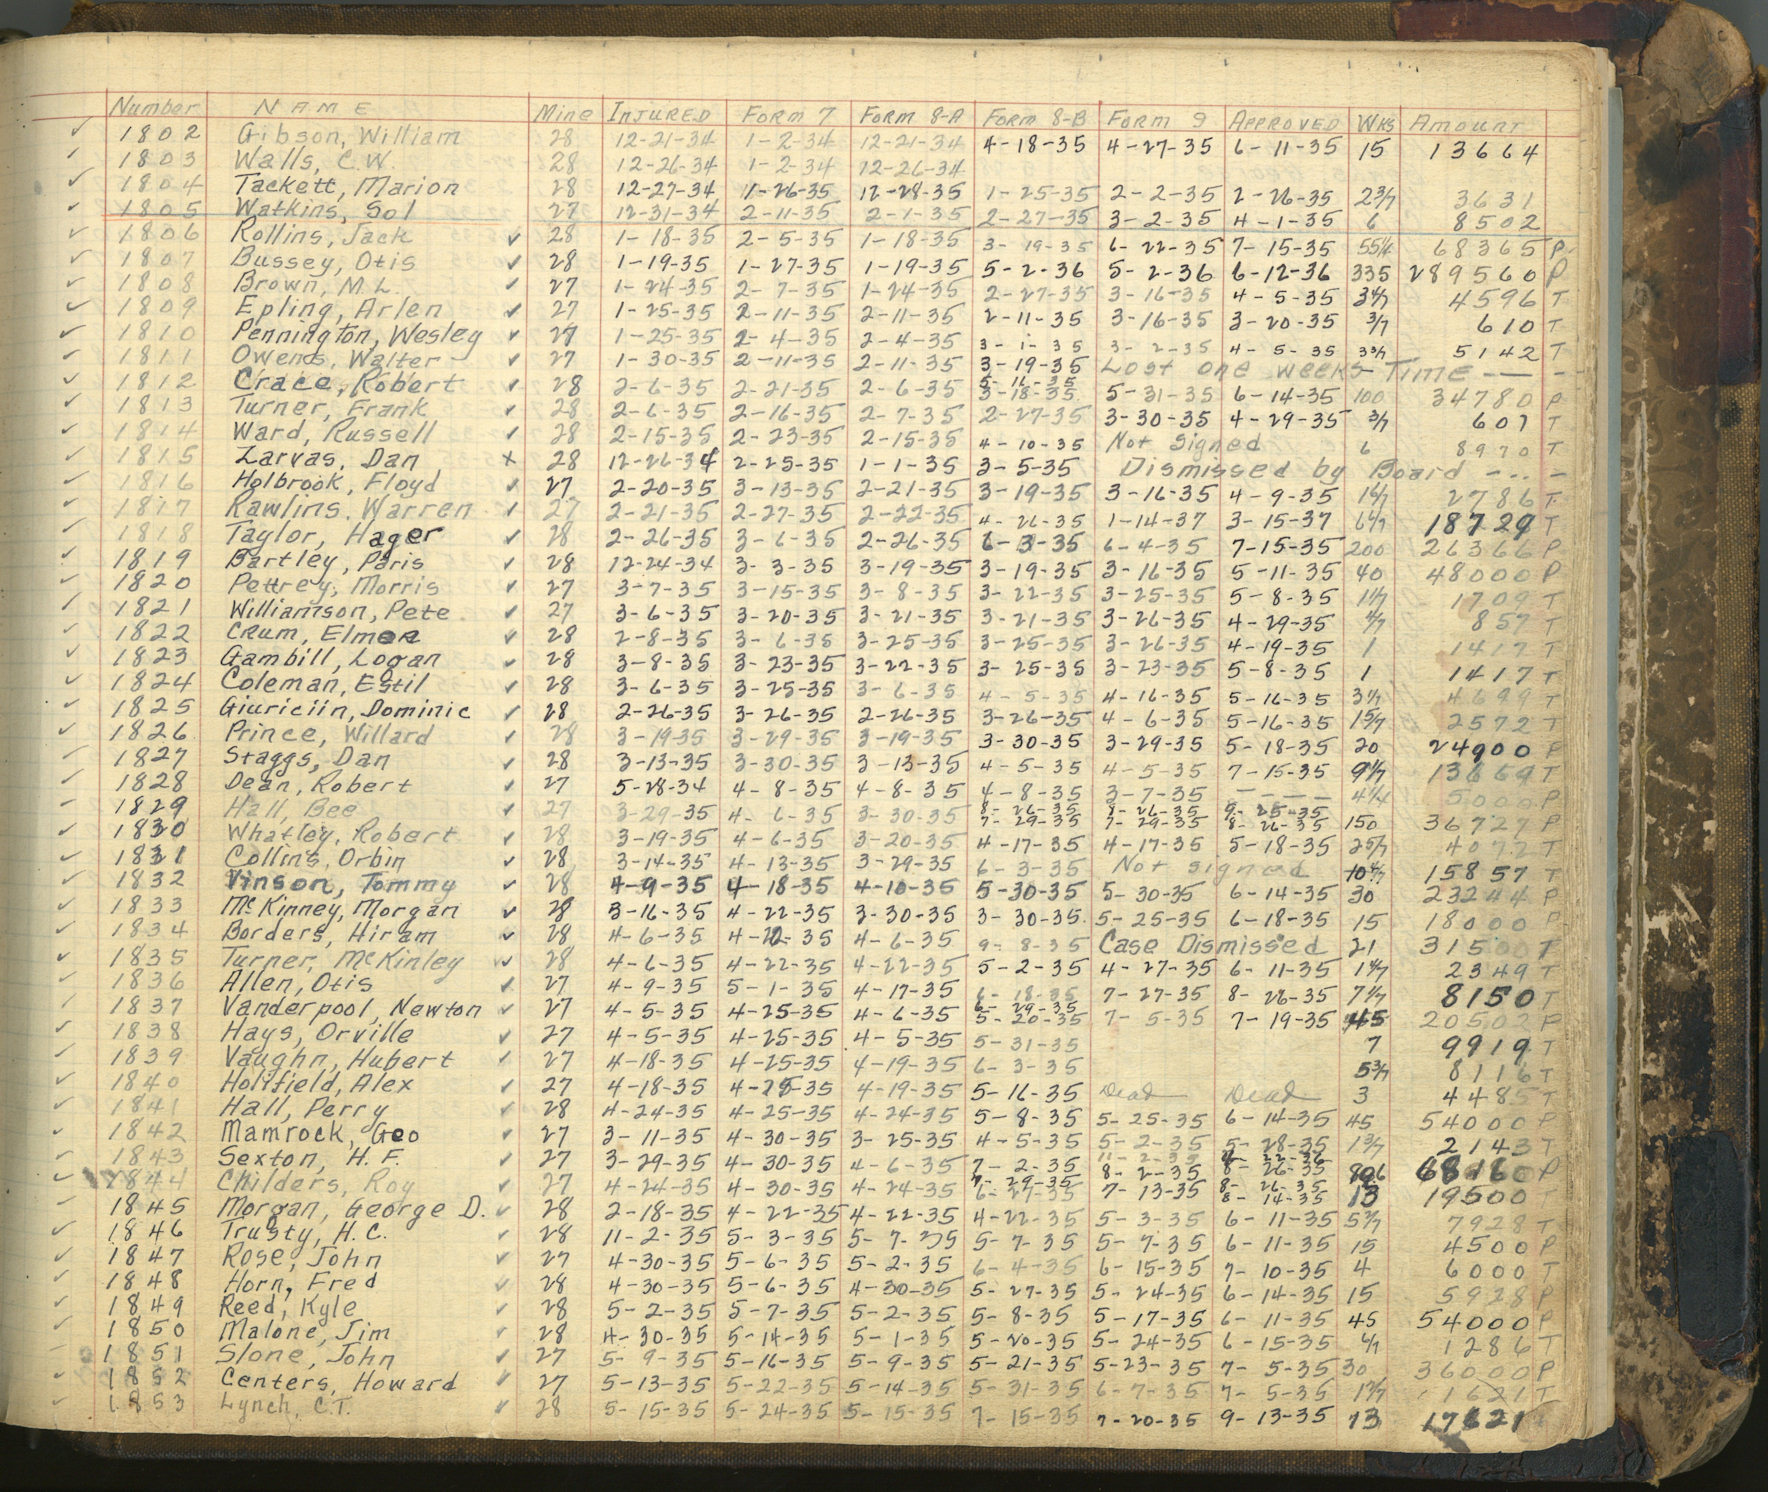 Number NAME Mine INJURED FORM 7 FORM 8-A FORM 8-B FORM 9 APPROVED WKS AMOUNT
1802 Gibson, William 28 12-21-34 1-2-34 12-21-34 4-18-35 4-27-35 6-11-35 15 13664
1803 Walls, C.W. 28 12-26-34 1-2-34 12-26-34
1804 Tackett, Marion 28 12-27-34 1-26-35 12-28-35 1-25-35 2-2-35 2-26-35 2 3/7 3631
1805 Watkins, Sol 27 12-31-34 2-11-35 2-1-35 2-27-35 3-2-35 4-1-35 6 8502
1806 Rollins, Jack 28 1-18-35 2-5-35 1-18-35 3-19-35 6-22-35 7-15-35 55 1/4 68365 P
1807 Bussey, Otis 28 1-19-35 1-27-35 1-19-35 5-2-36 5-2-36 6-12-36 335 289560 P
1808 Brown, M.L. 27 1-24-35 2-7-35 1-24-35 2-27-35 3-16-35 4-5-35 3 4/7 4596 T
1809 Epling, Arlen 27 1-25-35 2-11-35 2-11-35 2-11-35 3-16-35 3-20-35 3/7 610 T
1810 Pennington, Wesley 27 1-25-35 2-4-35 2-4-35 3-1-35 3-2-35 4-5-35 3 3/7 5142 T
1811 Owens, Walter 27 1-30-35 2-11-35 2-11-35 3-19-35 Lost one weeks Time
1812 Crace, Robert 28 2-6-35 2-21-35 2-6-35 5-16-35 3-18-35 5-31-35 6-14-35 100 34780 P
1813 Turner, Frank 28 2-6-35 2-16-35 2-7-35 2-27-35 3-30-35 4-29-35 3/7 607 T
1814 Ward, Russell 28 2-15-35 2-23-35 2-15-35 4-10-35 Not Signed 6 8970 T
1815 Larvas, Dan x 28 12-26-34 2-25-35 1-1-35 3-5-35 Dismissed by Board
1816 Holbrook, Floyd 27 2-20-35 3-13-35 2-21-35 3-19-35 3-16-35 4-9-35 1 6/7 2786 T
1817 Rawlins, Warren 27 2-21-35 2-27-35 2-22-35 4-26-35 1-14-37 3-15-37 18729 T
1818 Taylor, Hager 28 2-26-35 3-6-35 2-26-35 6-3-35 6-4-35 7-15-35 200 26366 P
1819 Bartley, Paris 28 12-24-34 3-3-35 3-19-35 3-19-35 3-16-35 5-11-35 40 48000 P
1820 Pettrey, Morris 27 3-7-35 3-15-35 3-8-35 3-22-35 3-25-35 5-8-35 1 1/7 1709 T
1821 Williamson, Pete 27 3-6-35 3-20-35 3-21-35 3-21-35 3-26-35 4-29-35 4/7 857 T
1822 Crum, Elmer 28 2-8-35 3-6-35 3-25-35 3-25-35 3-26-35 4-19-35 1 1417 T
1823 Gambill, Logan 28 3-8-35 3-23-35 3-22-35 3-25-35 3-23-35 5-8-35 1 1417 T
1824 Coleman, Estil 28 3-6-35 3-25-35 3-6-35 4-5-35 4-16-35 5-16-35 3 1/7 4699 T
1825 Giuriciin, Dominic 28 2-26-35 3-26-35 2-26-35 3-26-35 4-6-35 5-16-35 1 5/7 2572 T
1826 Prince, Willard 28 3-19-35 3-29-35 3-19-35 3-30-35 3-29-35 5-18-35 20 24900 P
1827 Staggs, Dan 28 3-13-35 3-30-35 3-13-35 4-5-35 4-5-35 7-15-35 9 1/7 13669 T
1828 Dean, Robert 27 5-28-34 4-8-35 4-8-35 4-8-35 3-7-35 4 1/4 5000 P
1829 Hall, Bee 27 3-29-35 4-6-35 3-30-35 8-26-35 7-29-35 8-26-35 7-29-35 9-25-35 8-26-35 150 36727 P
1830 Whatley, Robert 28 3-19-35 4-6-35 3-20-35 4-17-35 4-17-35 5-18-35 2 5/7 4072 T
1831 Collins, Orbin 28 3-14-35 4-13-35 3-29-35 6-3-35 Not signed 10 4/7 15857 T
1832 Vinson, Tommy 28 4-9-35 4-18-35 4-10-35 5-30-35 5-30-35 6-14-35 30 23244 P
1833 McKinney, Morgan 28 3-16-35 4-22-35 3-30-35 3-30-35 5-25-35 6-18-35 15 18000 P
1834 Borders, Hiram 28 4-6-35 4-12-35 4-6-35 9-8-35 Case Dismissed 21 31500 T
1835 Turner, McKinley 28 4-6-35 4-22-35 4-22-35 5-2-35 4-27-35 6-11-35 1 4/7 2349 T
1836 Allen, Otis 27 4-9-35 5-1-35 4-17-35 6-18-35 7-27-35 8-26-35 7 1/7 8150 T
1837 Vanderpool, Newton 27 4-5-35 4-25-35 4-6-35 6-29-35 5-20-35 7-5-35 7-19-35 45 20502 P
1838 Hays, Orville 27 4-5-35 4-25-35 4-5-35 5-31-35 7 9919 T
1839 Vaughn, Hubert 27 4-18-35 4-25-35 4-19-35 6-3-35 5 3/7 8116 T
1840 Holifield, Alex 27 4-18-35 4-25-35 4-19-35 5-16-35 Dead Dead 3 4485 T
1841 Hall, Perry 28 4-24-35 4-25-35 4-24-35 5-8-35 5-25-35 6-14-35 45 54000 P
1842 Mamrock, Geo 27 3-11-35 4-30-35 3-25-35 4-5-35 5-2-35 5-28-35 1 3/7 2143 T
1843 Sexton, H.F. 27 3-29-35 4-30-35 4-6-35 7-2-35 8-2-35 8-26-35 68160 P
1844 Childers, Roy 27 4-24-35 4-30-35 4-24-35 7-29-35 7-13-35 8-26-35 8-14-35 13 19500 T
1845 Morgan, George D. 28 2-18-35 4-22-35 4-22-35 4-22-35 5-3-35 6-11-35 5 3/7 7928 T
1846 Trusty, H.C. 28 11-2-35 5-3-35 5-7-35 5-7-35 5-7-35 6-11-35 15 4500 P
1847 Rose, John 27 4-30-35 5-6-35 5-2-35 6-4-35 6-15-35 7-10-35 4 6000 T
1848 Horn, Fred 28 4-30-35 5-6-35 4-30-35 5-27-35 5-24-35 6-14-35 15 5928 P
1849 Reed, Kyle 28 5-2-35 5-7-35 5-2-35 5-8-35 5-17-35 6-11-35 45 54000 P
1850 Malone, Jim 28 4-30-35 5-14-35 5-1-35 5-20-35 5-24-35 6-15-35 6/7 1286 T
1851 Slone, John 27 5-9-35 5-16-35 5-9-35 5-21-35 5-23-35 7-5-35 30 36000 P
1852 Centers, Howard 27 5-13-35 5-22-35 5-14-35 5-31-35 6-7-35 7-5-35 1 3/7 1621 T
1853 Lynch, C.T. 28 5-15-35 5-24-35 5-15-35 7-15-35 7-20-35 9-13-35 13 17621